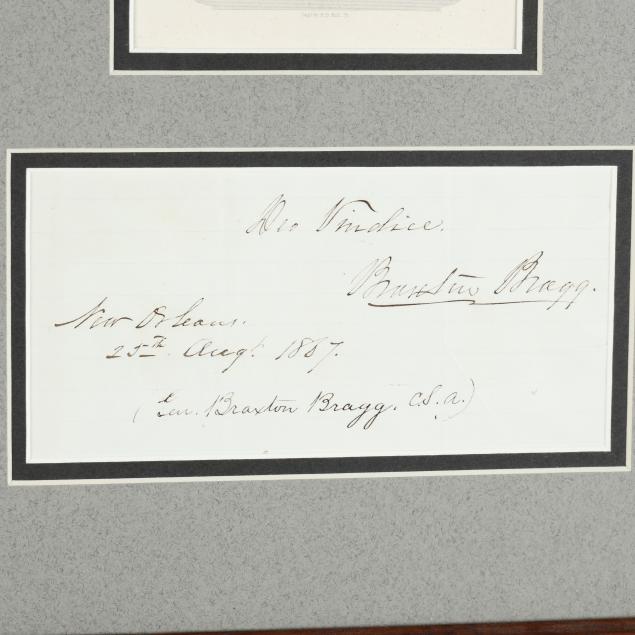 Deo Vindice.
Braxton Bragg.
New Orleans.
25th Augt. 1867.
(Gen. Braxton Bragg. C.S.A.)